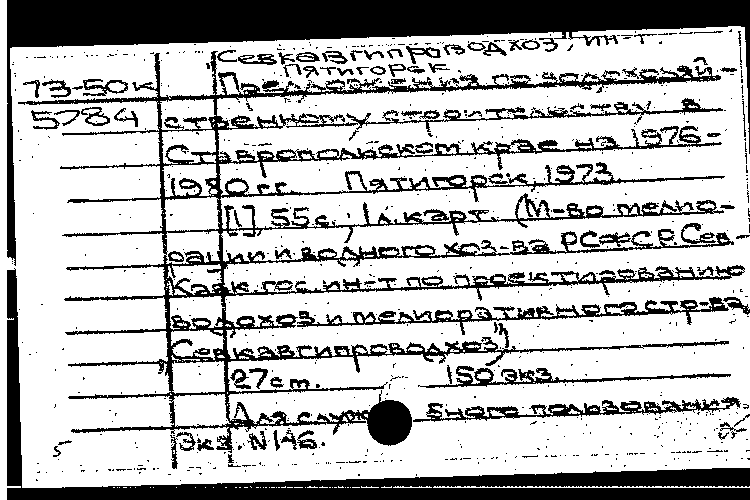 "Севкавгипроводхоз", ин-т.
Пятигорск.
73-50к Предложения по водохозяй-
5784 ственному строительству в
Ставропольском крае на 1976-
1980 гг. Пятигорск, 1973.
[1], 55 с.; 1 л. карт. (М-во мелио-
рации и водного хоз-ва РСФСР. Сев.-
Кавк. гос. ин-т по проектированию
водохоз. и мелиоративного стр-ва
"Севкавгипроводхоз")
27 см. 150 экз.
Для служебного пользования.
Экз. N 146.
5